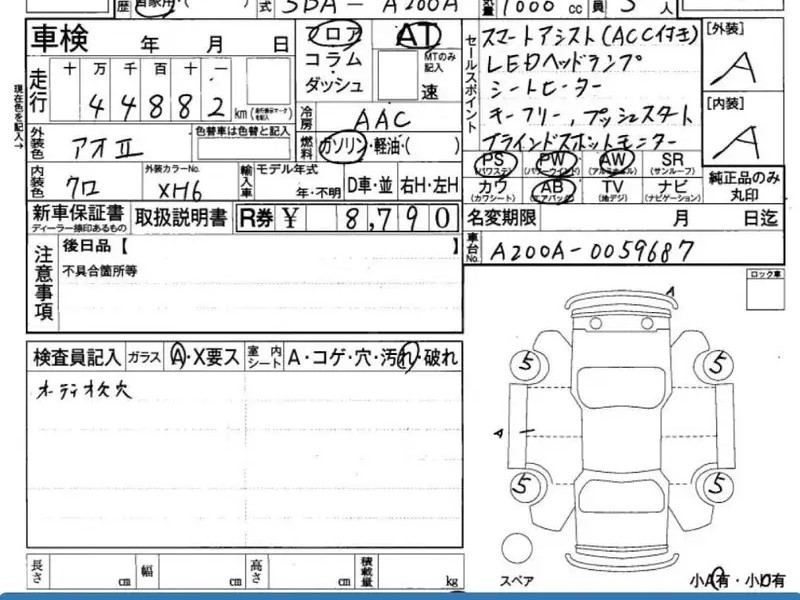 歴 自家用・( ) 式 5BA-A200A 気量 1000 cc 員 5 人
車検 年 月 日
フロア コラム ダッシュ
AT MTのみ記入 速
現在色を記入→
走行 十 万 千 百 十 一
4 4 8 8 2 km
冷房 AAC
燃料 ガソリン・軽油・( )
外装色 アオⅡ
色替車は色替と記入
内装色 クロ
外装カラーNo. XH6
輸入車 モデル年式 年・不明 D車・並 右H・左H
新車保証書 ディーラー捺印あるもの 取扱説明書 R券 ¥ 8,790
セールスポイント
スマートアシスト(ACC付き)
LEDヘッドランプ
シートヒーター
キーフリー, プッシュスタート
ブラインドスポットモニター
[外装] A
[内装] A
PS (パワステ) PW (パワーウインド) AW (アルミホイール) SR (サンルーフ)
カワ (カワシート) AB (エアバッグ) TV (地デジ) ナビ (ナビゲーション)
純正品のみ丸印
名変期限 月 日迄
車台No. A200A-0059687
注意事項
後日品【 】
不具合箇所等
ロック車
検査員記入 ガラス A・X要ス 室内シート A・コゲ・穴・汚れ・破れ
オーディオ欠穴
A
5 5
A
5 5
スペア
小A有・小U有
長さ cm 幅 cm 高さ cm 積載量 kg